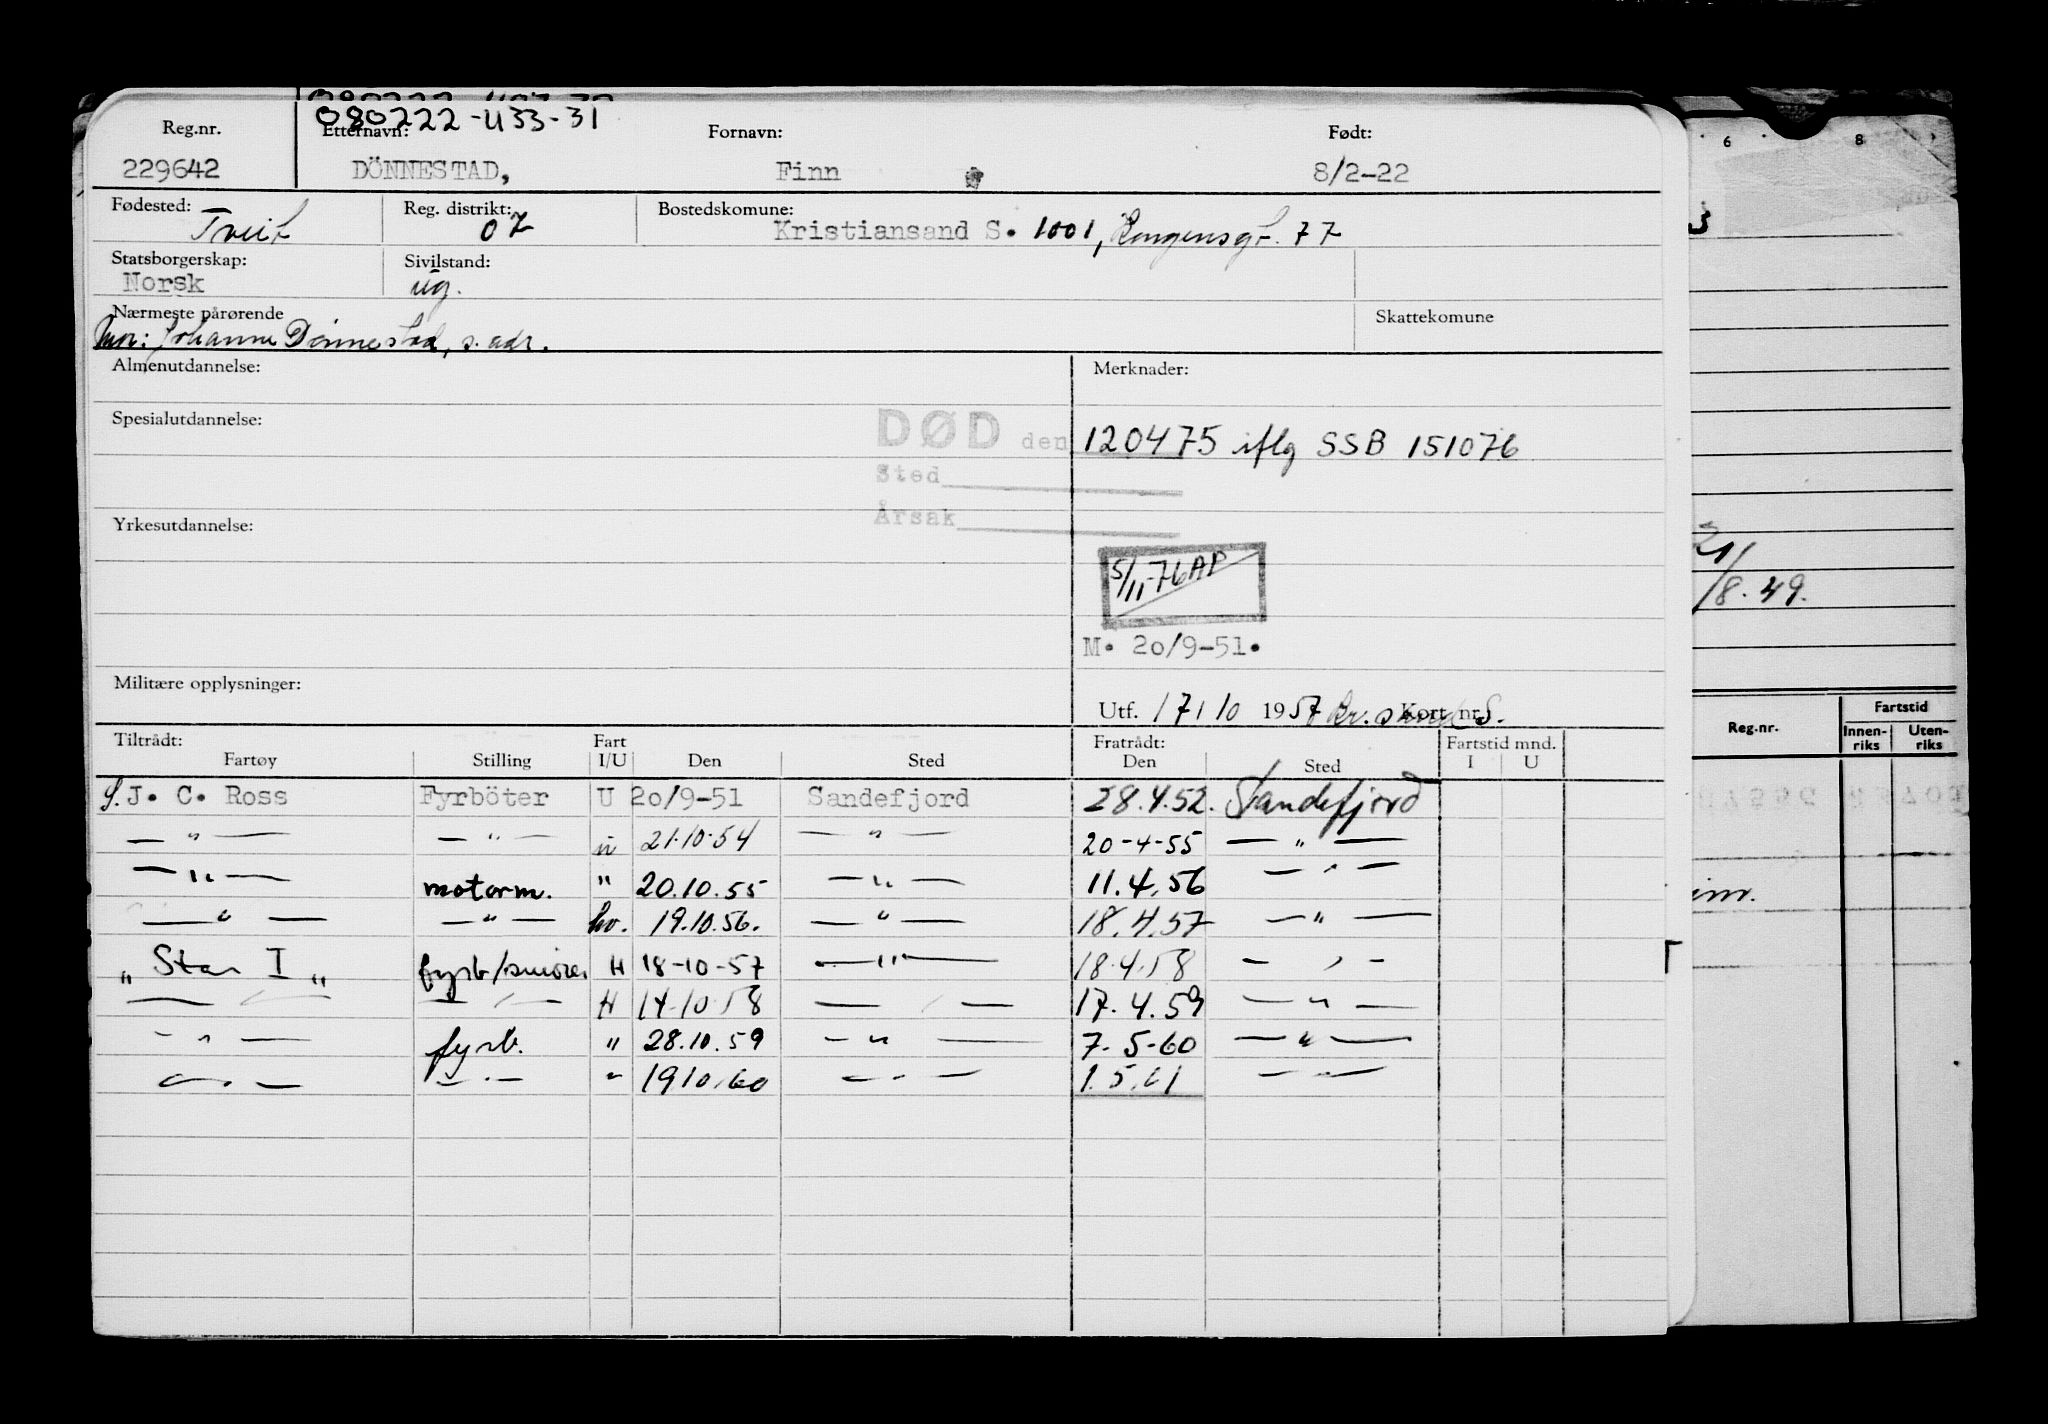 080222-433-31
Reg.nr. Etternavn: Fornavn: Født:
229642 DÖNNESTAD, Finn 8/2-22
Fødested: Reg. distrikt: Bostedskomune:
Tveit 07 Kristiansand S. 1001, Kongensgt. 77
Statsborgerskap: Sivilstand:
Norsk ug.
Nærmeste pårørende Skattekomune
Mor: Johanne Dønnestad, s. adr.
Almenutdannelse: Merknader:
Spesialutdannelse:
DØD den 120475 iflg SSB 151076
Sted
Årsak
Yrkesutdannelse:
5/11-76 AP
M. 20/9-51.
Militære opplysninger:
Utf. 17/10 1957 Kr.sand S. Kort nr.
Tiltrådt: Fart Fratrådt: Fartstid mnd.
Fartøy Stilling I/U Den Sted Den Sted I U
S. J. C. Ross Fyrböter U 20/9-51 Sandefjord 28.4.52. Sandefjord
— " — — " — u 21.10.54 — " — 20-4-55 — " —
— " — motorm. " 20.10.55 — " — 11.4.56 — " —
— " — — " — hv. 19.10.56. — " — 18.4.57 — " —
"Star I" fyrb/smører H 18-10-57 — " — 18.4.58 — " —
— " — — " — H 14.10.58 — " — 17.4.59 — " —
— " — fyrb. " 28.10.59 — " — 7.5-60 — " —
— " — — " — " 19.10.60 — " — 1.5.61 — " —
6 8
3
21/
/8.49.
Reg.nr. Fartstid
Innen-riks Uten-riks